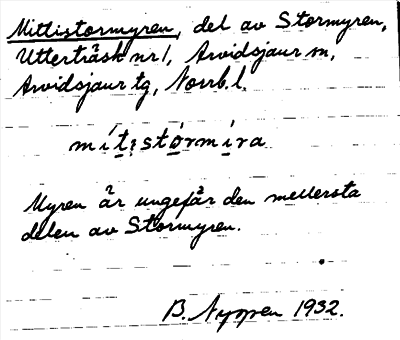 Mittistormyren, del av Stormyren,
Utterträsk nr 1, Arvidsjaur sn,
Arvidsjaur tg, Norrb. l.
mítistórmira
Myren är ungefär den mellersta
delen av Stormyren.
B. Nyppen 1932.